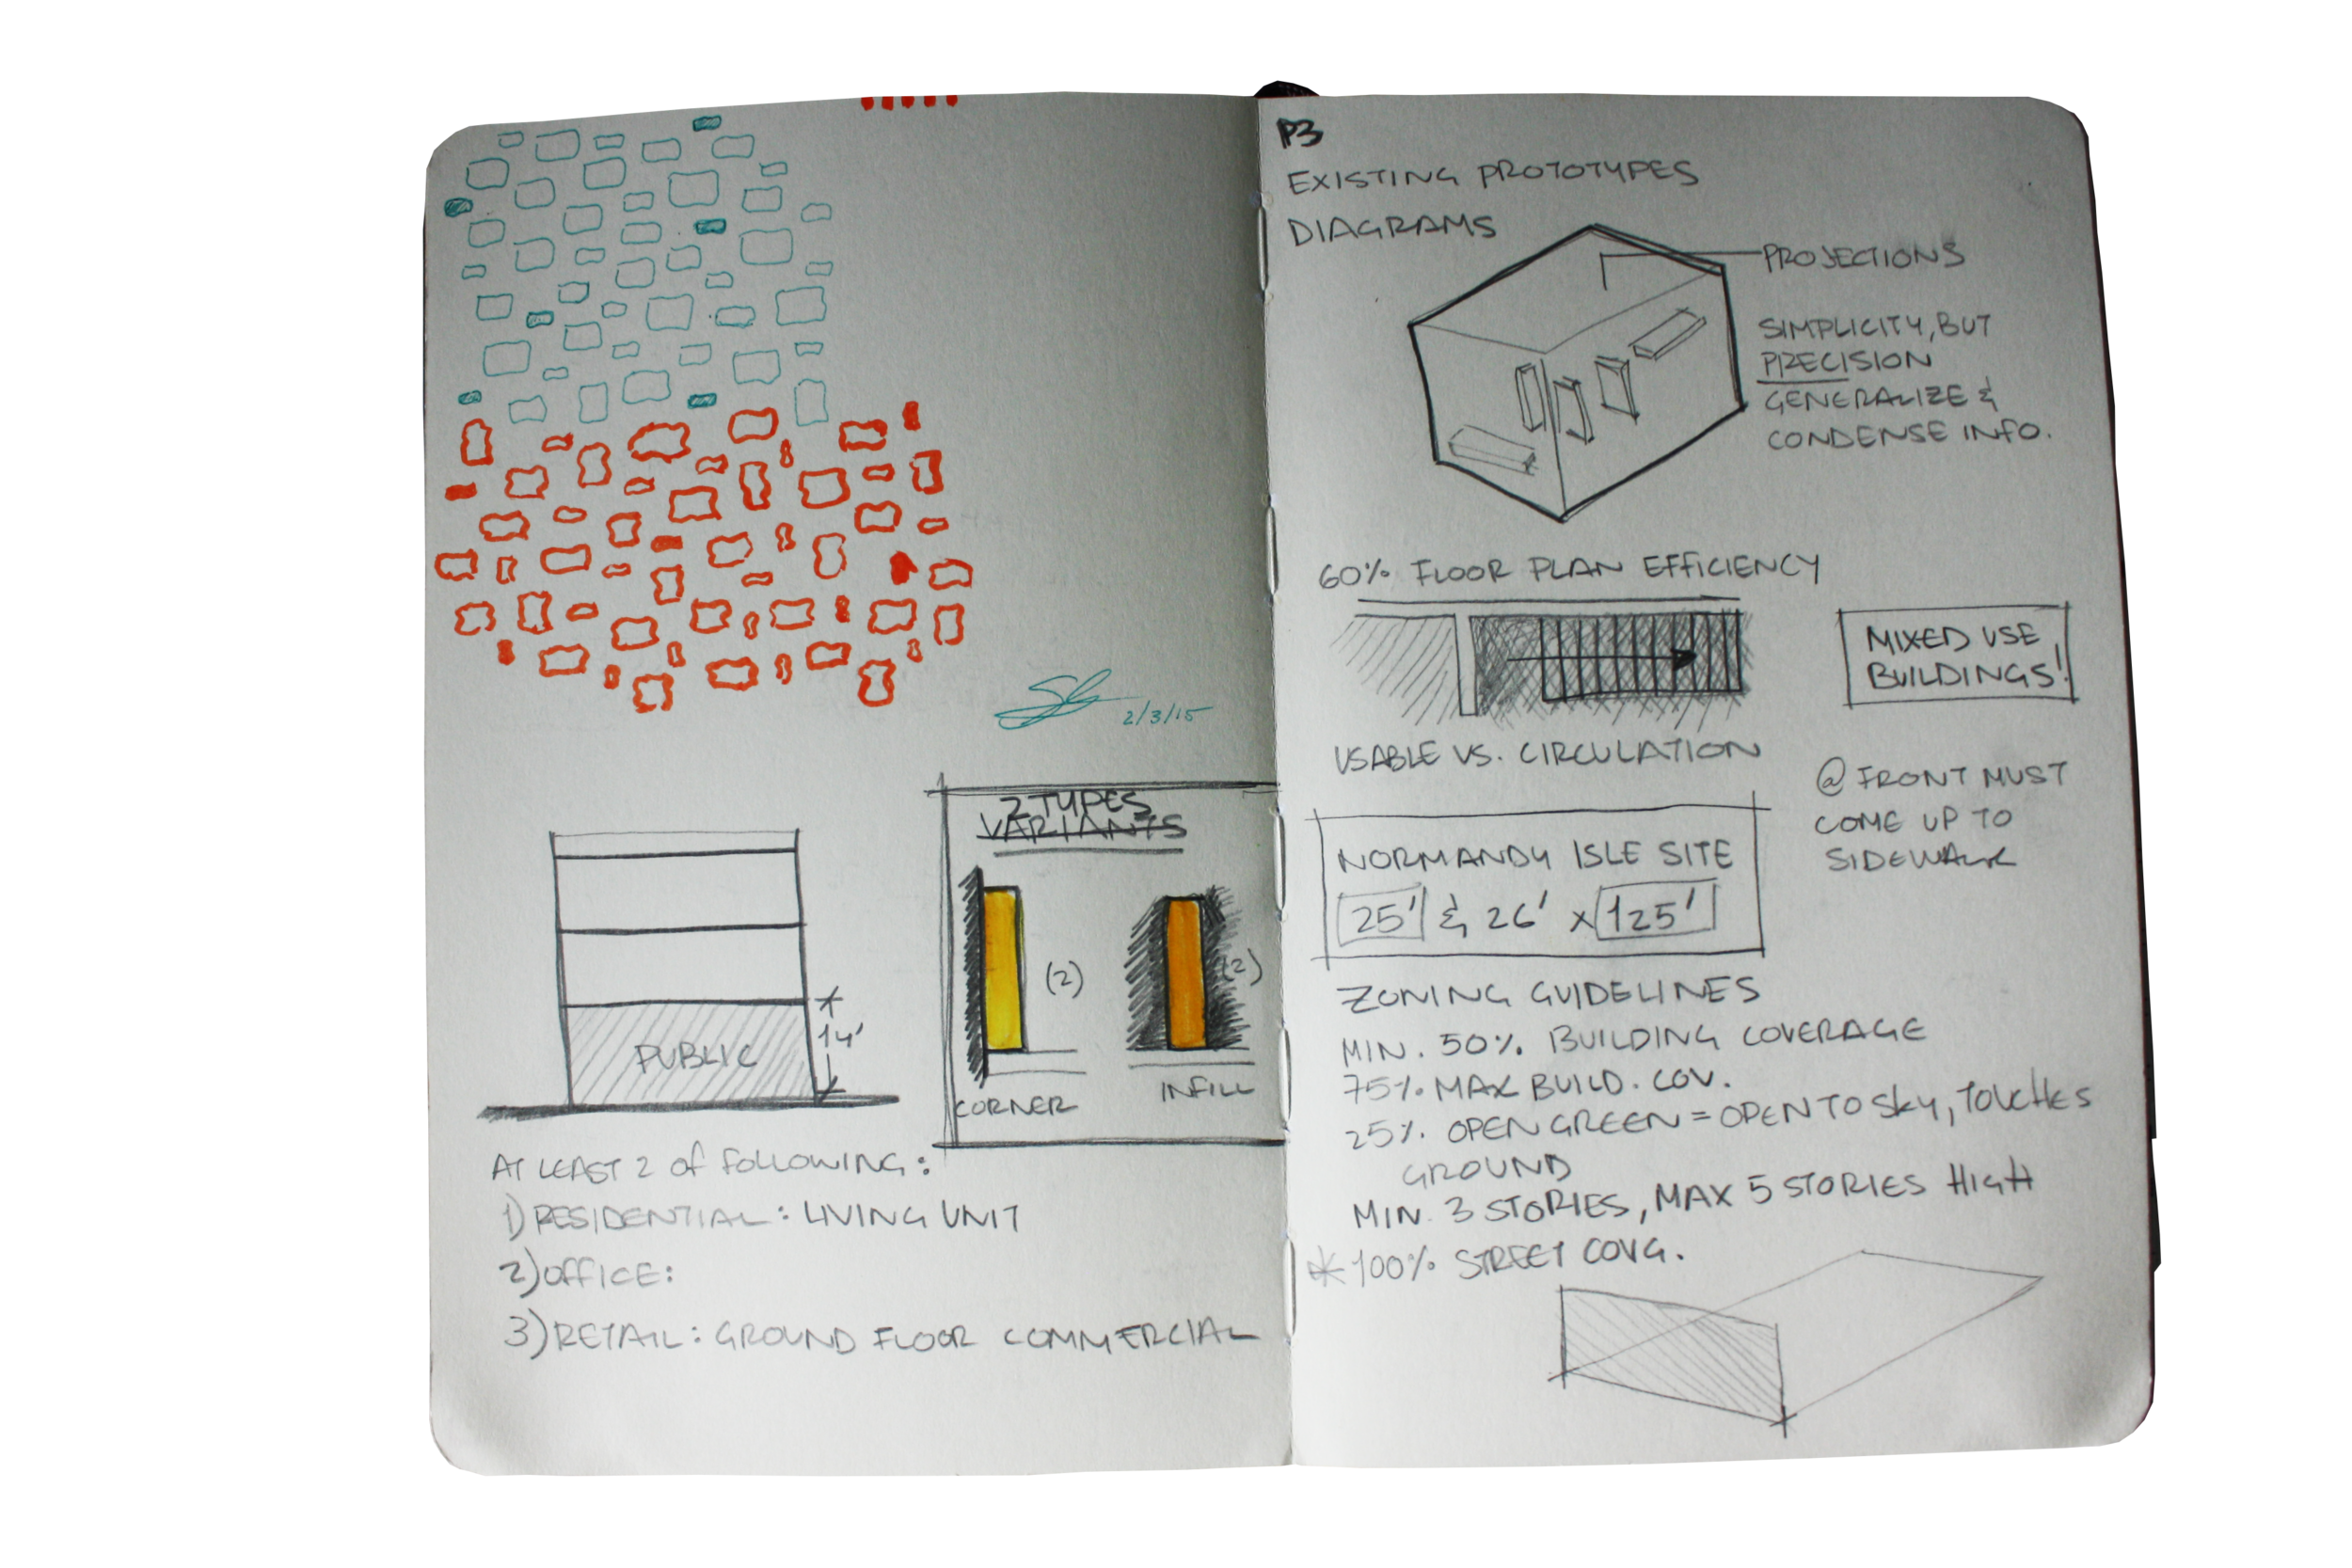 2/3/15
2 TYPES
VARIANTS
(2)
(2)
CORNER
INFILL
14'
PUBLIC
AT LEAST 2 OF FOLLOWING:
1) RESIDENTIAL: LIVING UNIT
2) OFFICE:
3) RETAIL: GROUND FLOOR COMMERCIAL
P3
EXISTING PROTOTYPES
DIAGRAMS
PROJECTIONS
SIMPLICITY, BUT
PRECISION
GENERALIZE &
CONDENSE INFO.
60% FLOOR PLAN EFFICIENCY
MIXED USE
BUILDINGS!
USABLE VS. CIRCULATION
@ FRONT MUST
COME UP TO
SIDEWALK
NORMANDY ISLE SITE
25' & 26' x 125'
ZONING GUIDELINES
MIN. 50% BUILDING COVERAGE
75% MAX BUILD. COV.
25% OPEN GREEN = OPEN TO SKY, TOUCHES
GROUND
MIN. 3 STORIES, MAX 5 STORIES HIGH
*100% STREET COVG.